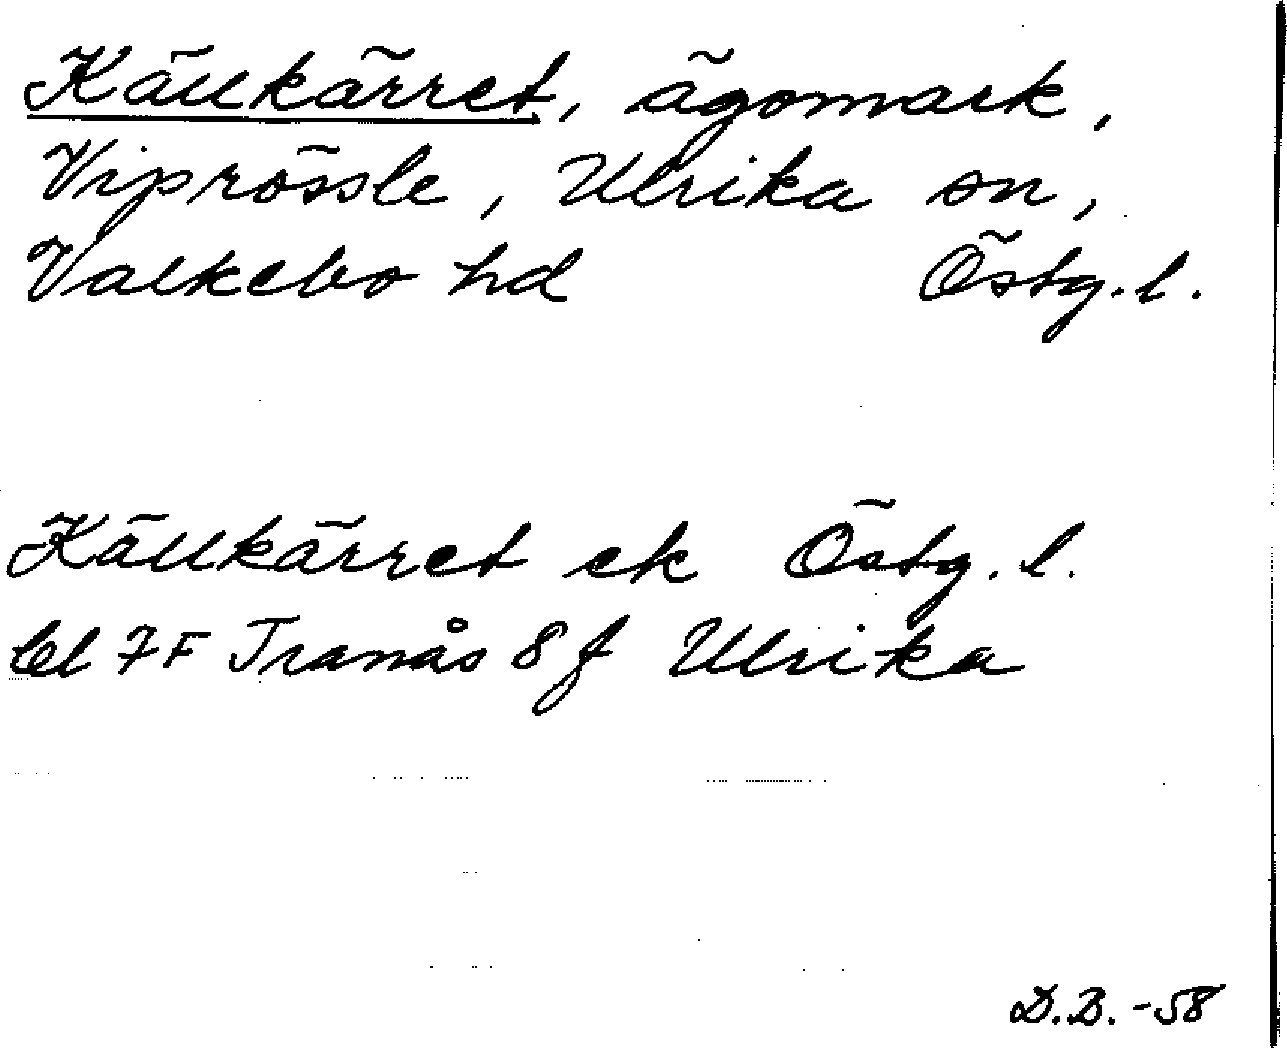 Källkärret, ägomark,
Viprössle, Ulrika sn,
Valkebo hd Östg.l.
Källkärret ek Östg.l.
bl 7F Tranås 8f Ulrika
D.B. -58